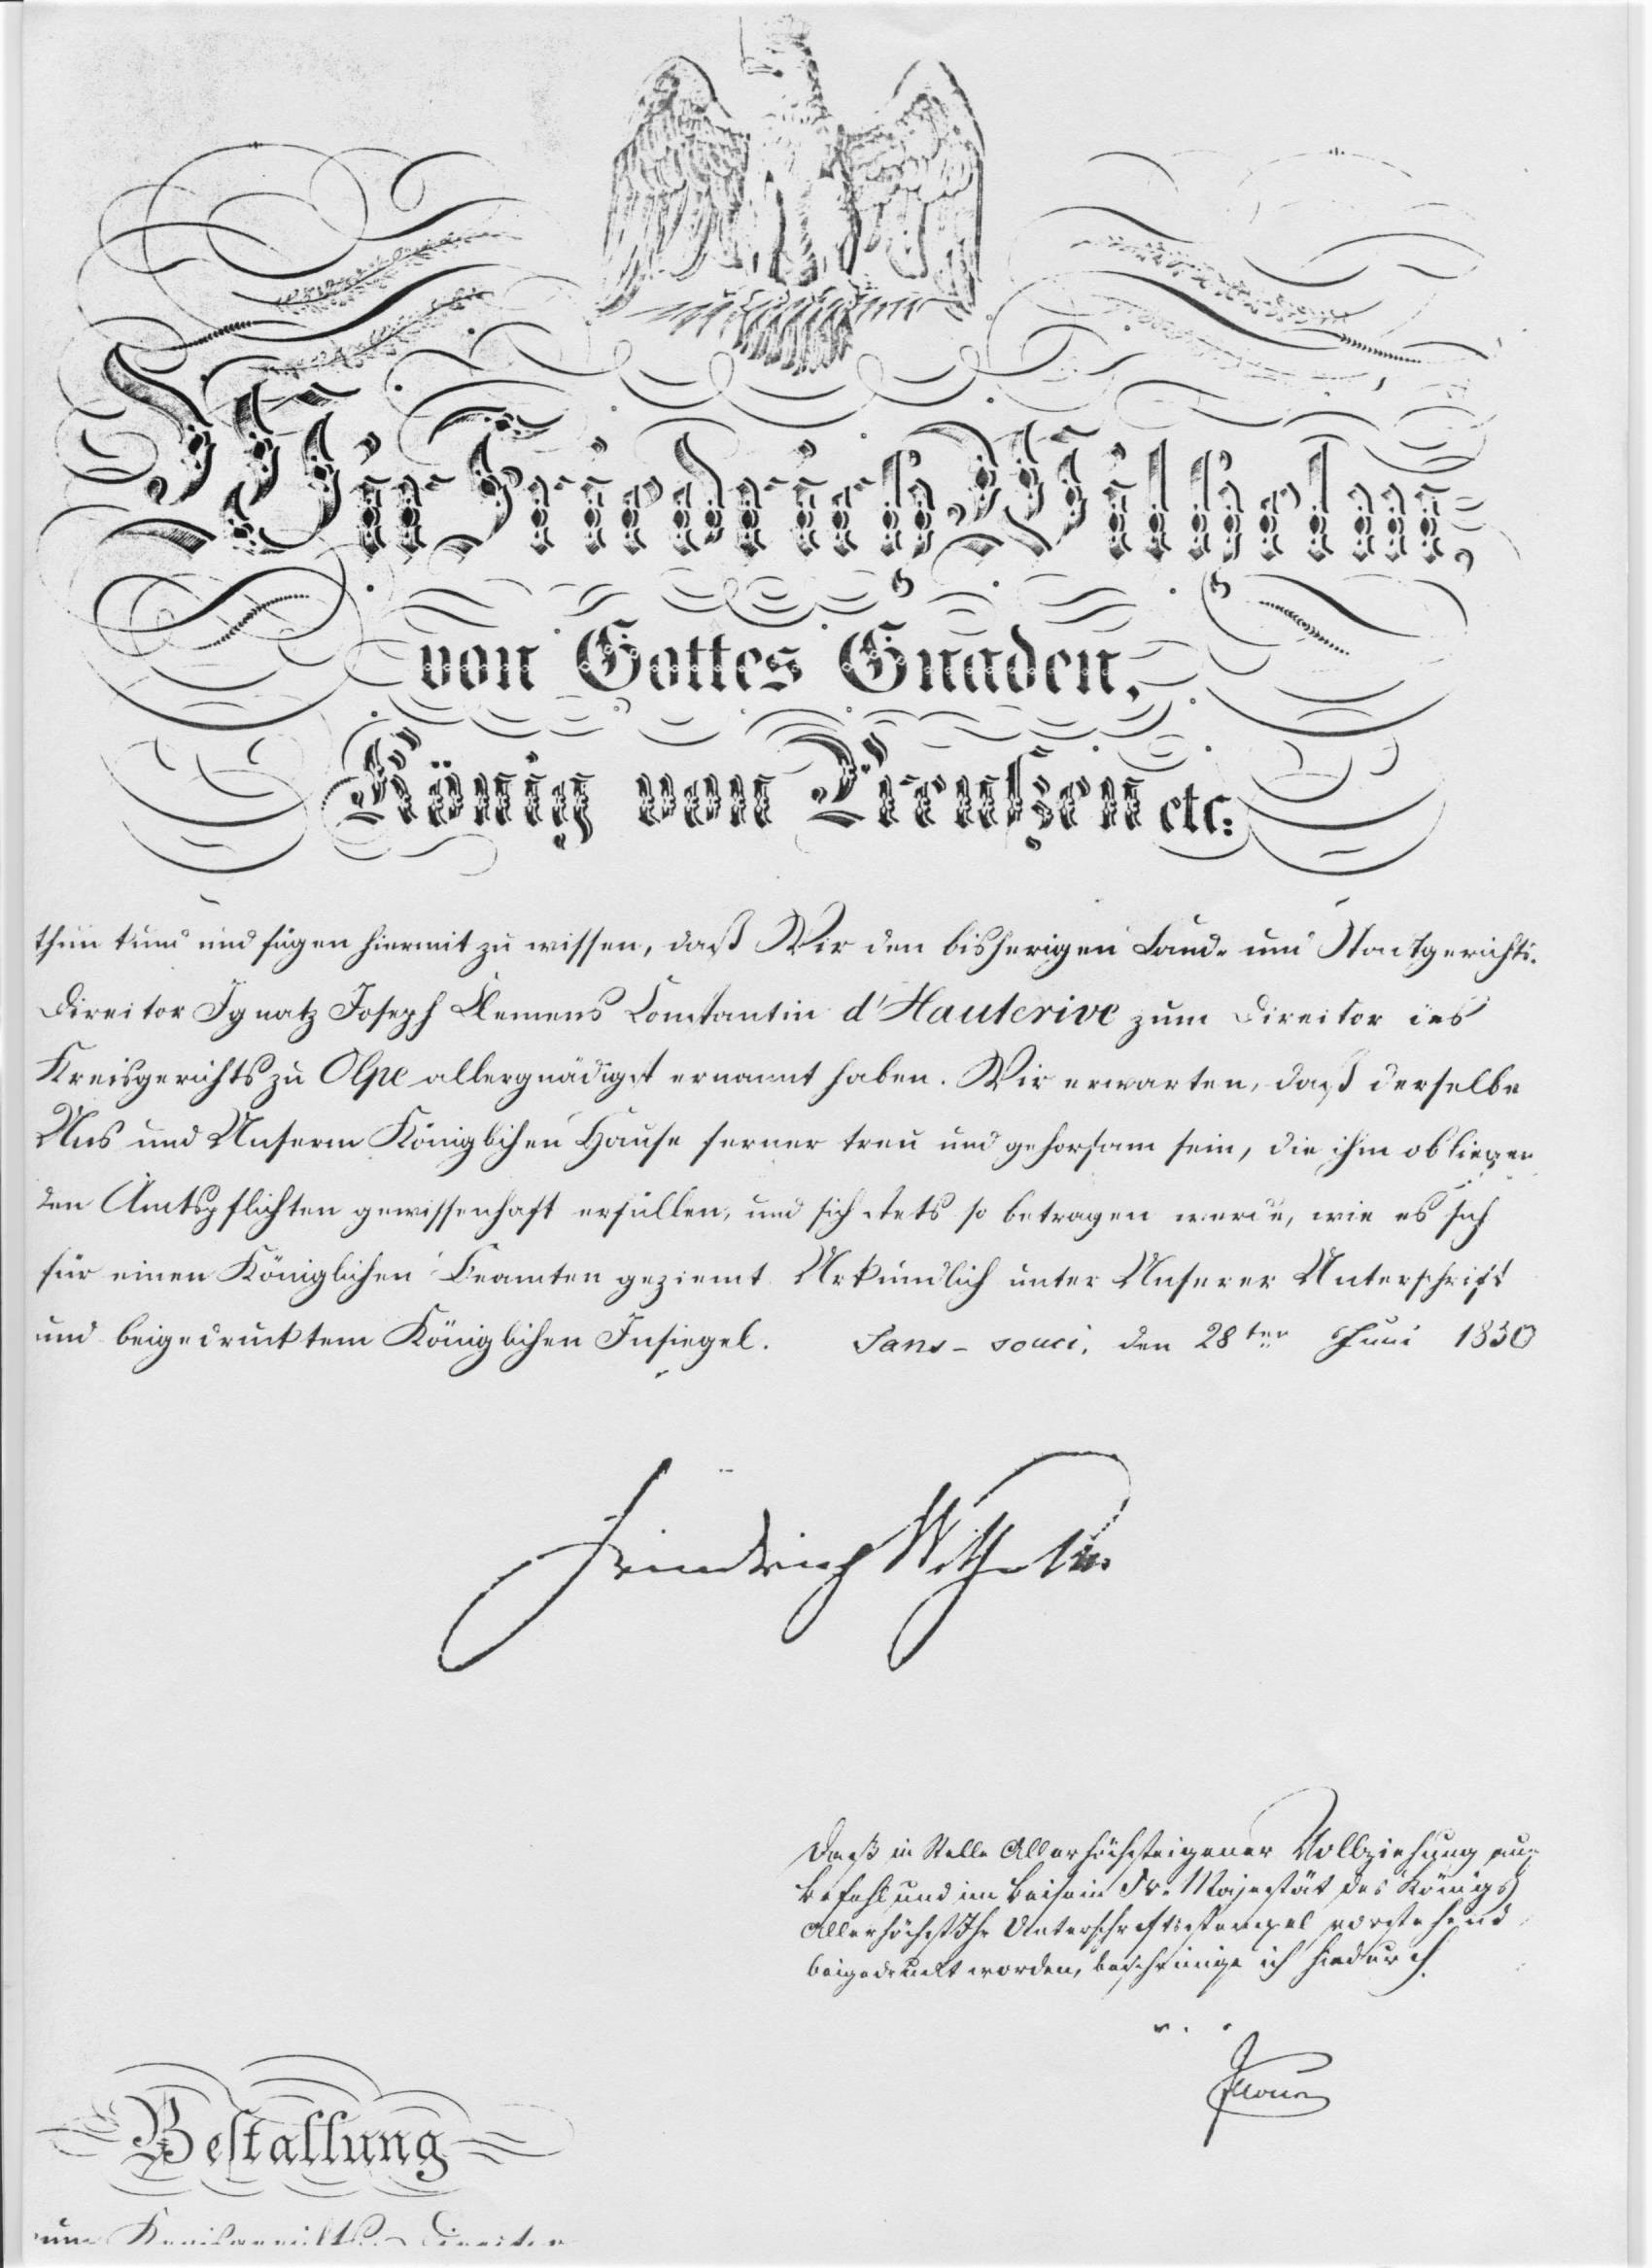 Wir Friedrich Wilhelm,
von Gottes Gnaden,
König von Preußen etc:
thun kund und fügen hiermit zu wissen, daß Wir den bisherigen Land- und Stadtgerichts-
Director Ignatz Joseph Klemens Constantin d'Hauterive zum Director des
Kreisgerichts zu Olpe allergnädigst ernannt haben. Wir erwarten, daß derselbe
Uns und Unserm Königlichen Hause ferner treu und gehorsam sein, die ihm obliegen
den Amtspflichten gewissenhaft erfüllen, und sich stets so betragen werde, wie es sich
für einen Königlichen Beamten geziemt Urkundlich unter Unserer Unterschrift
und beigedrucktem Königlichen Insiegel. Sans-souci, den 28ten Juni 1850
Friedrich Wilhelm
Daß in Stelle Allerhöchsteigener Vollziehung auf
Befehl und im Beisein Sr. Majestät des Königs
Allerhöchst Ihr Unterschriftsstempel vorstehend
beigedruckt worden, bescheinige ich hiedurch.
Bestallung
Kreisgerichts-Director